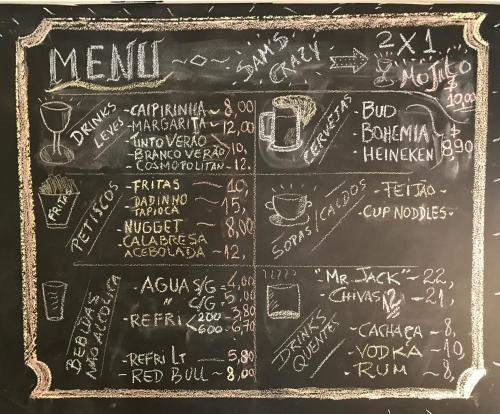 MENU
SAMS CRAZY
2X1
MOJITO
$ 10,00
DRINKS LEVES
- CAIPIRINHA ~ 8,00
- MARGARITA ~ 12,00
- TINTO VERÃO
- BRANCO VERÃO 10,
- COSMOPOLITAN - 12.
CERVEJAS
- BUD
- BOHEMIA
- HEINEKEN
$ 8,90
FRITAS
PETISCOS
- FRITAS ~ 10,
- DADINHO TAPIOCA ~ 15,
- NUGGET ~ 8,00
- CALABRESA ACEBOLADA ~ 12,
SOPAS/CALDOS
- FEIJÃO -
- CUP NODDLES -
BEBIDAS NÃO ALCOLICA
- AGUA S/G - 4,00
" C/G - 5,00
- REFRI < 200 - 3,80
600 - 6,70
- REFRI LT ~ 5,80
- RED BULL ~ 8,00
DRINKS QUENTES
- "MR. JACK" ~ 22,
- CHIVAS 12 ~ 21,
- CACHAÇA ~ 8,
- VODKA ~ 10,
- RUM ~ 8,